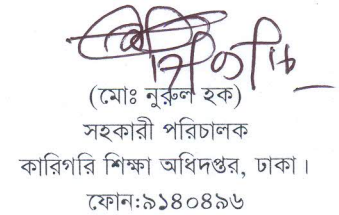 (মোঃ নুরুল হক)
সহকারী পরিচালক
কারিগরি শিক্ষা অধিদপ্তর, ঢাকা।
ফোন:৯১৪০৪৯৬